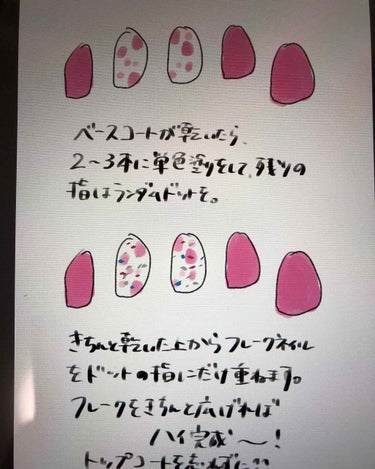 ベースコートが乾いたら、
2〜3本に単色塗りをして、残りの
指はランダムドットを。
きちんと乾いた上からフレークネイル
をドットの指にだけ重ねます。
フレークをきちんと広げれば
ハイ完成〜!
トップコートを忘れずに